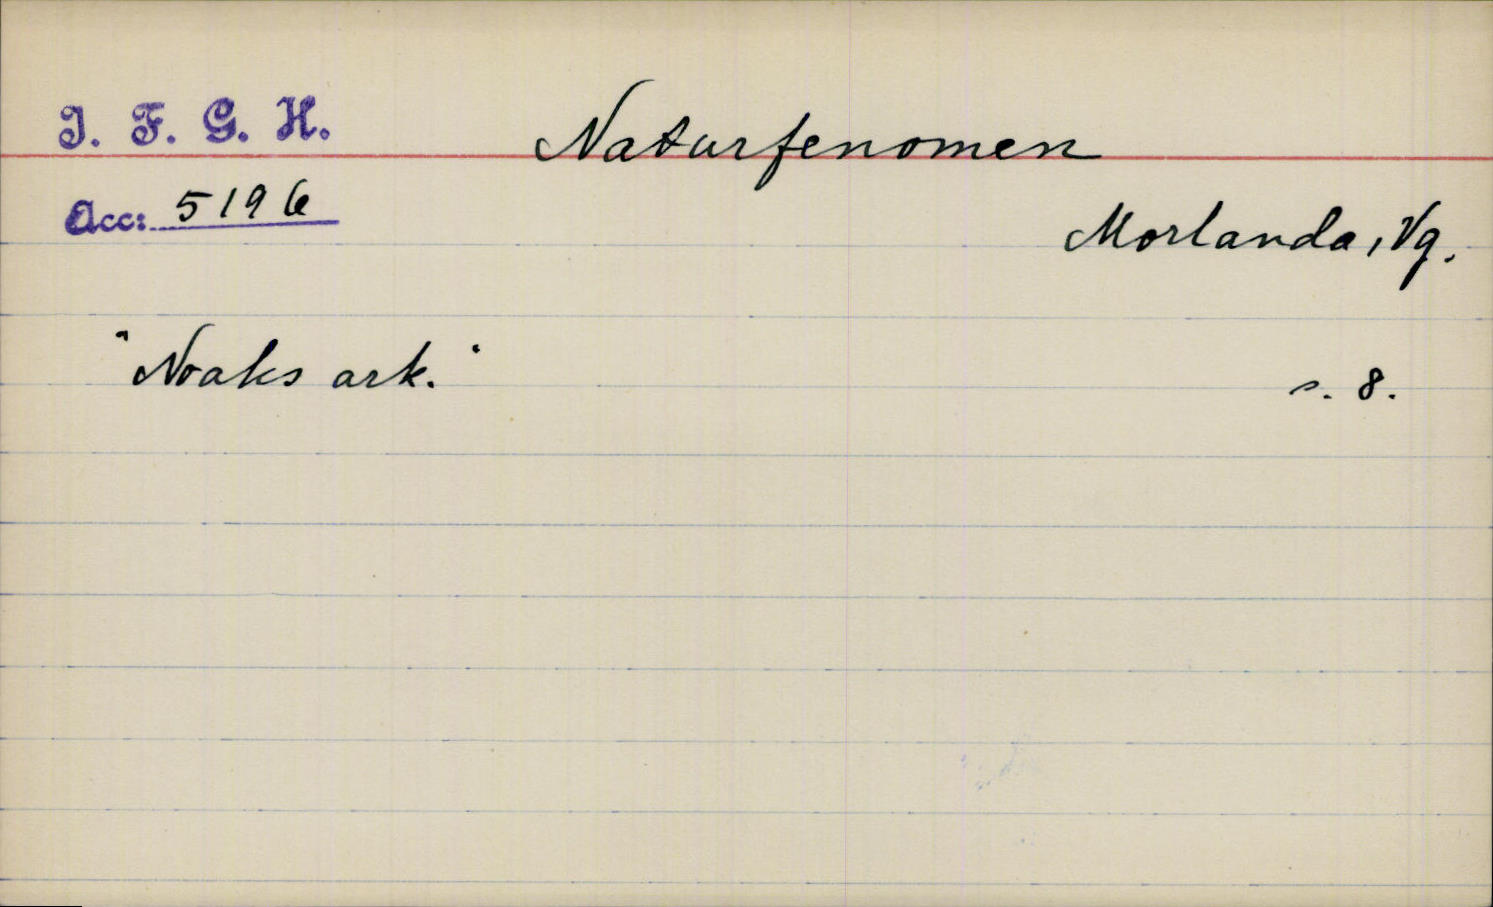 I. F. G. H.
Naturfenomen
Acc: 5196
Morlanda, Vg.
"Noaks ark."
s. 8.